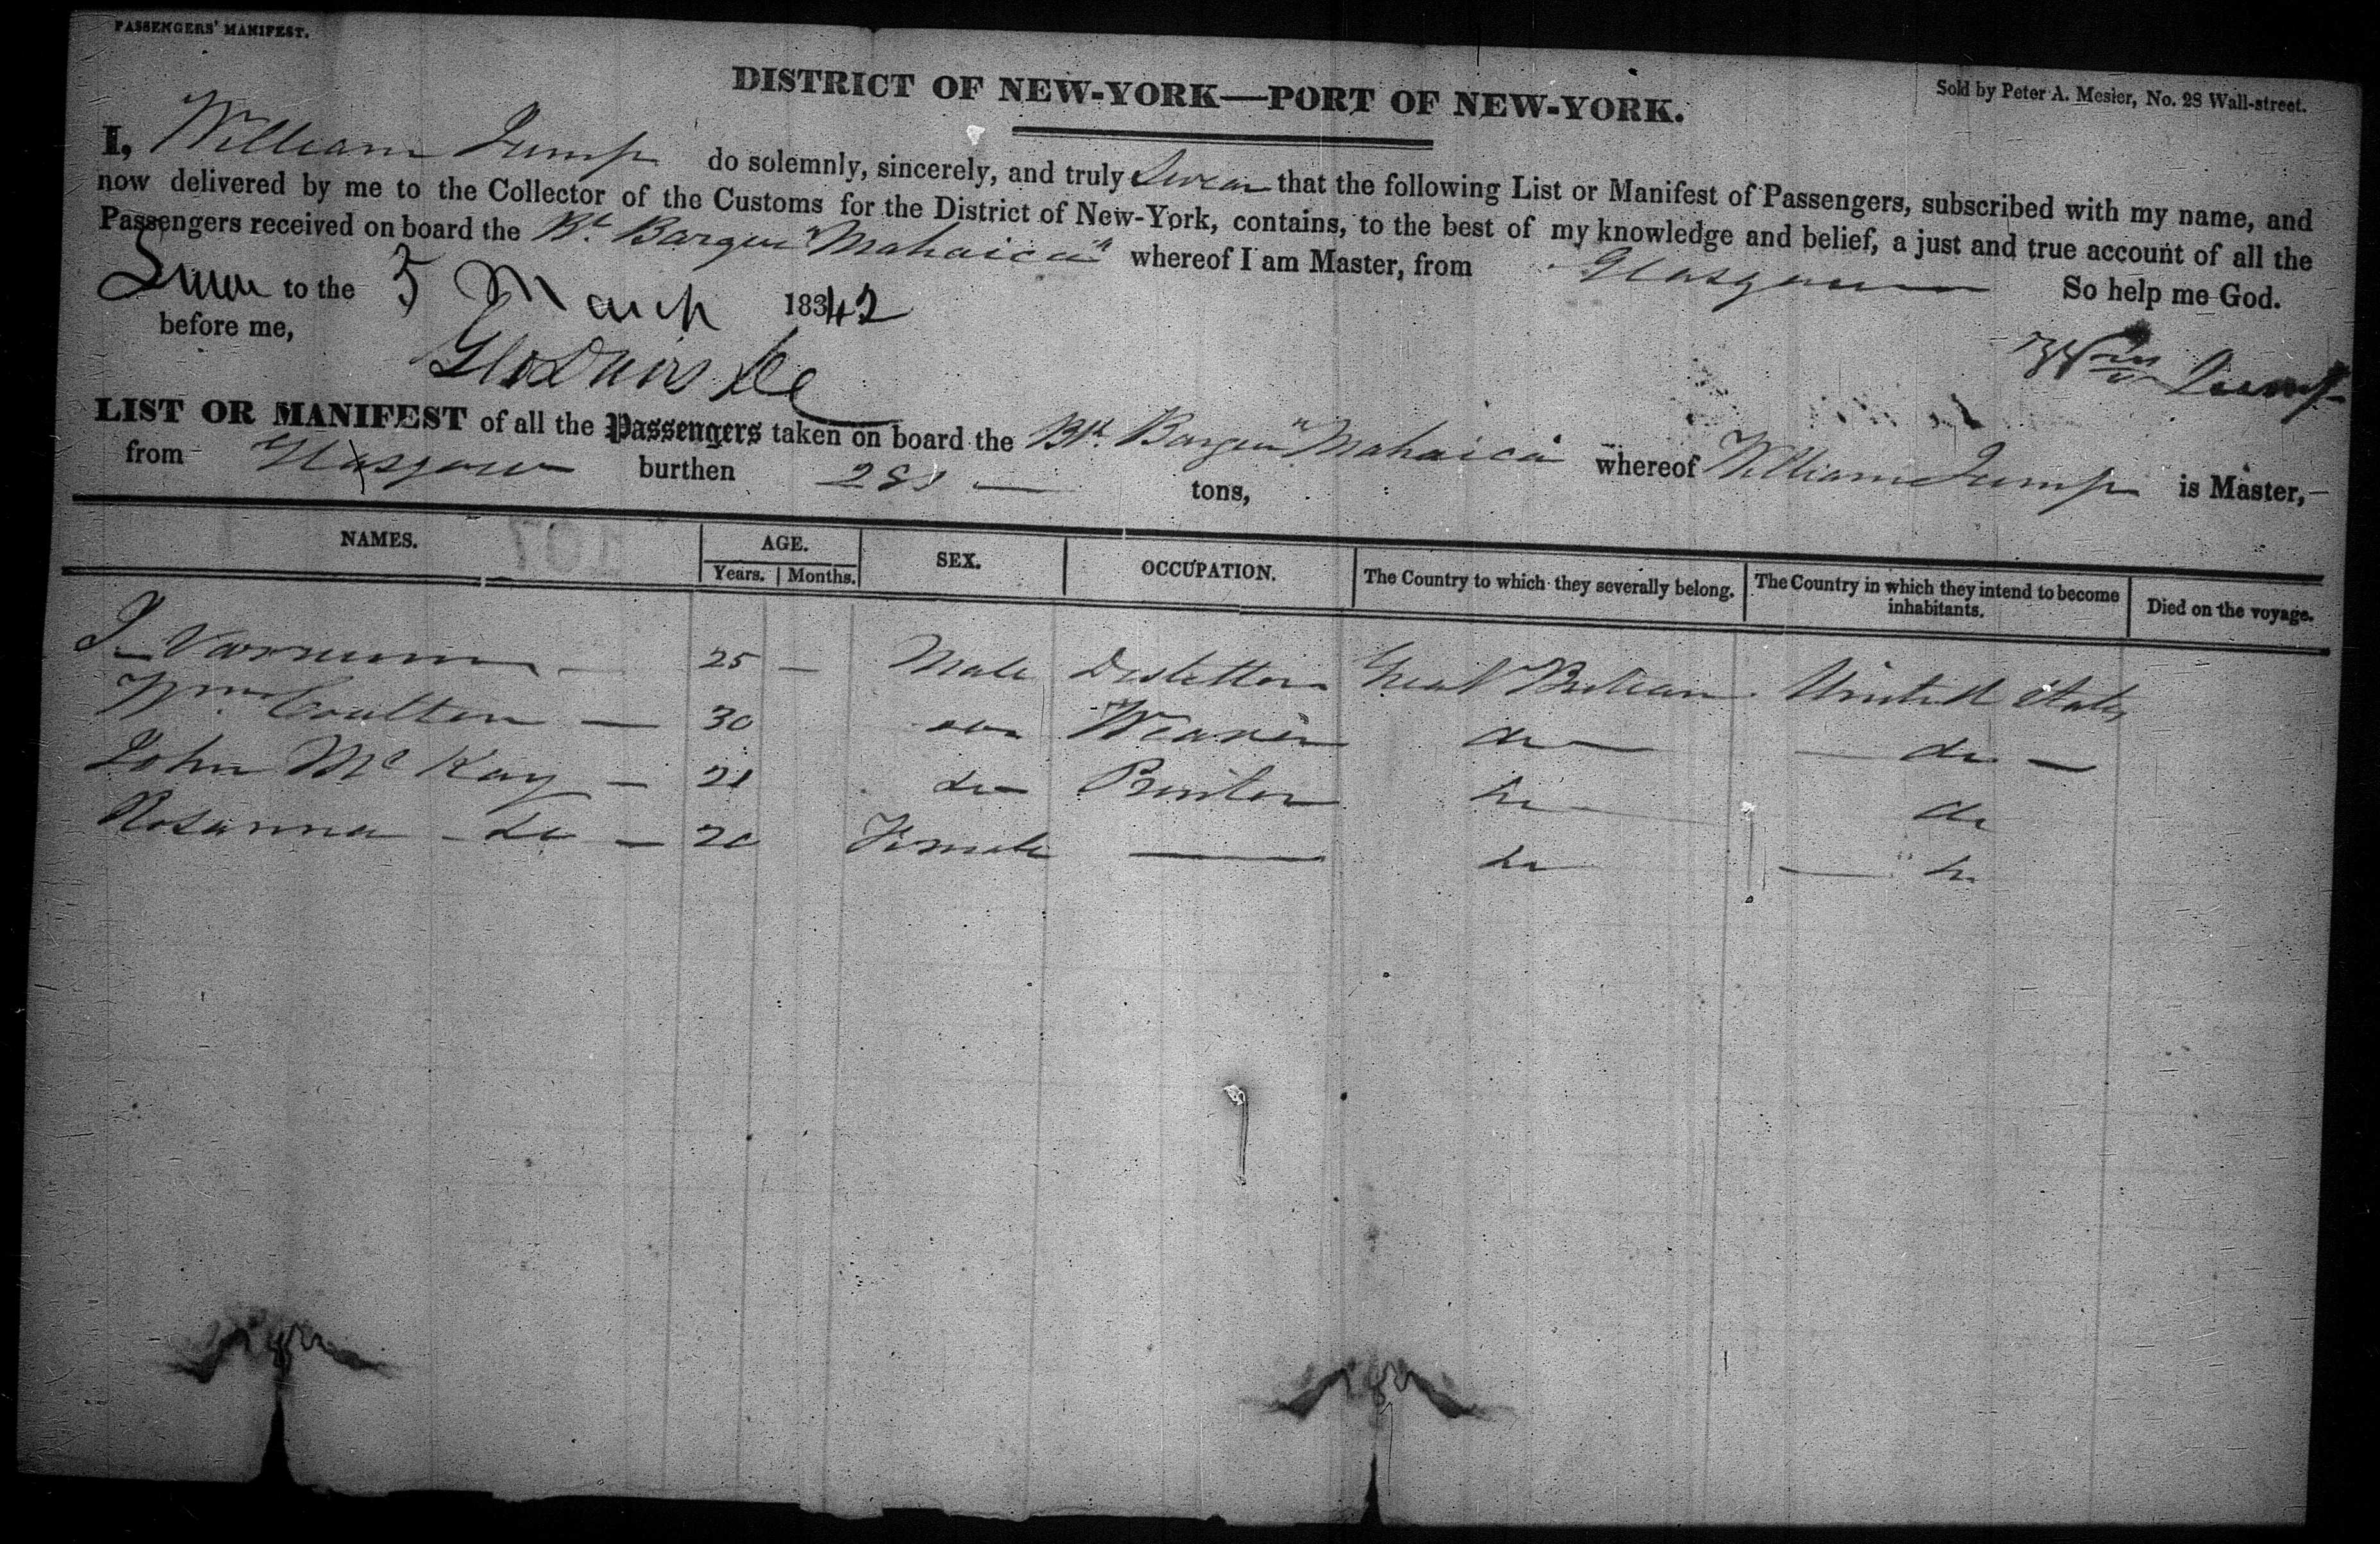 PASSENGERS' MANIFEST.
DISTRICT OF NEW-YORK—PORT OF NEW-YORK.
Sold by Peter A. Mesier, No. 28 Wall-street.
I, William Jump do solemnly, sincerely, and truly Swear that the following List or Manifest of Passengers, subscribed with my name, and
now delivered by me to the Collector of the Customs for the District of New-York, contains, to the best of my knowledge and belief, a just and true account of all the
Passengers received on board the Bh. Barque "Mahaica" whereof I am Master, from Glasgow So help me God.
Sworn to the 5 March 18342
before me,
Wm Jump
LIST OR MANIFEST of all the Passengers taken on board the Bh. Barque "Mahaica whereof William Jump is Master,
from Glasgow burthen tons,
107
NAMES. AGE. SEX. OCCUPATION. The Country to which they severally belong. The Country in which they intend to become inhabitants. Died on the voyage.
Years. Months.
J. 25 — Male Great Britain United States
Wm Coulter — 30 do Weaver do — do —
John McKay — 21 do Printer do do
Rosanna do — 20 Female — do — do